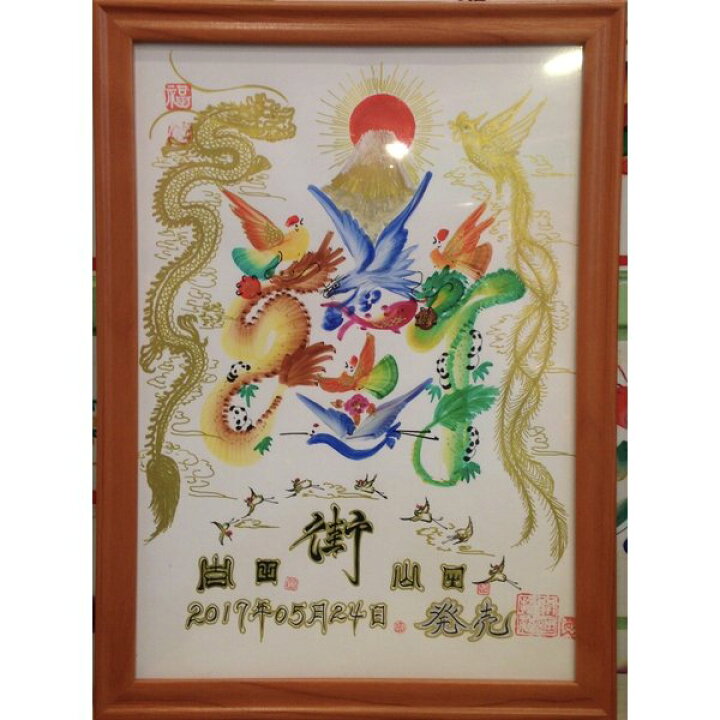 福
街
吉田 山田
2017年05月24日 発売